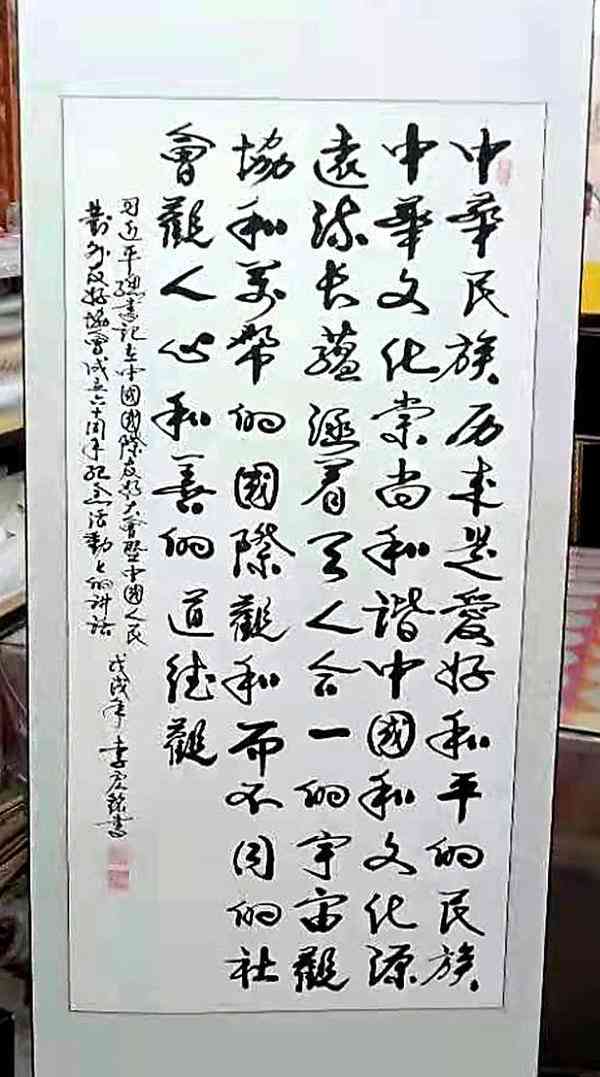 中華民族历来是愛好和平的民族
中華文化崇尚和谐中國和文化源
遠流长蕴涵着天人合一的宇宙觀
協和萬幫的國際觀和而不同的社
會觀人心和善的道德觀
习近平總書記在中國國際友好大會暨中國人民
對外友好協會成立六十周年纪念活動上的讲话 戊戌年 李書